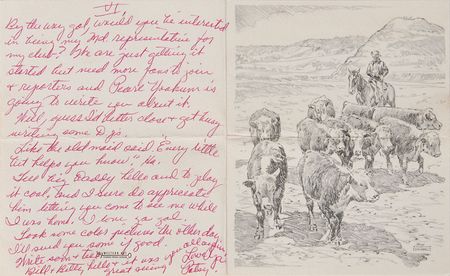 II,
By the way gal would you be interested
in being my Md representative for
my club? We are just getting it
started but need more fans to join
& reporters and Pearl Yoakum is
going to write you about it.
Well, guess I'd better close & get busy
writing some Djs.
Like the old maid said "Every little
bit helps you know" Ha.
Tell big Daddy hello and to play
it cool and I sure do appreciate
him letting you come to see me while
I was home. I love ya gal.
Took some color pictures the other day
I'll send you some if good.
Write soon & tell
Bill & Betty hello & it was
great seeing you all again
Love ya
Patsy